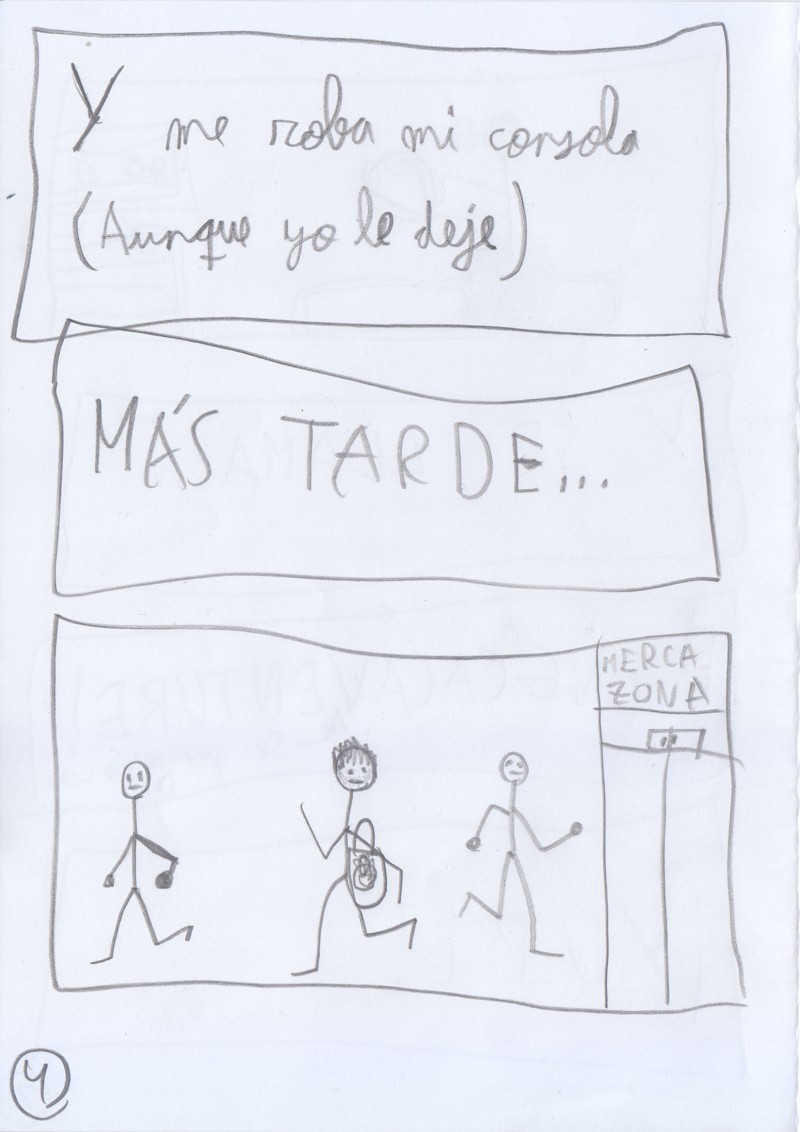 Y me roba mi consola
(Aunque yo le deje)
MÁS TARDE...
MERCA
ZONA
4